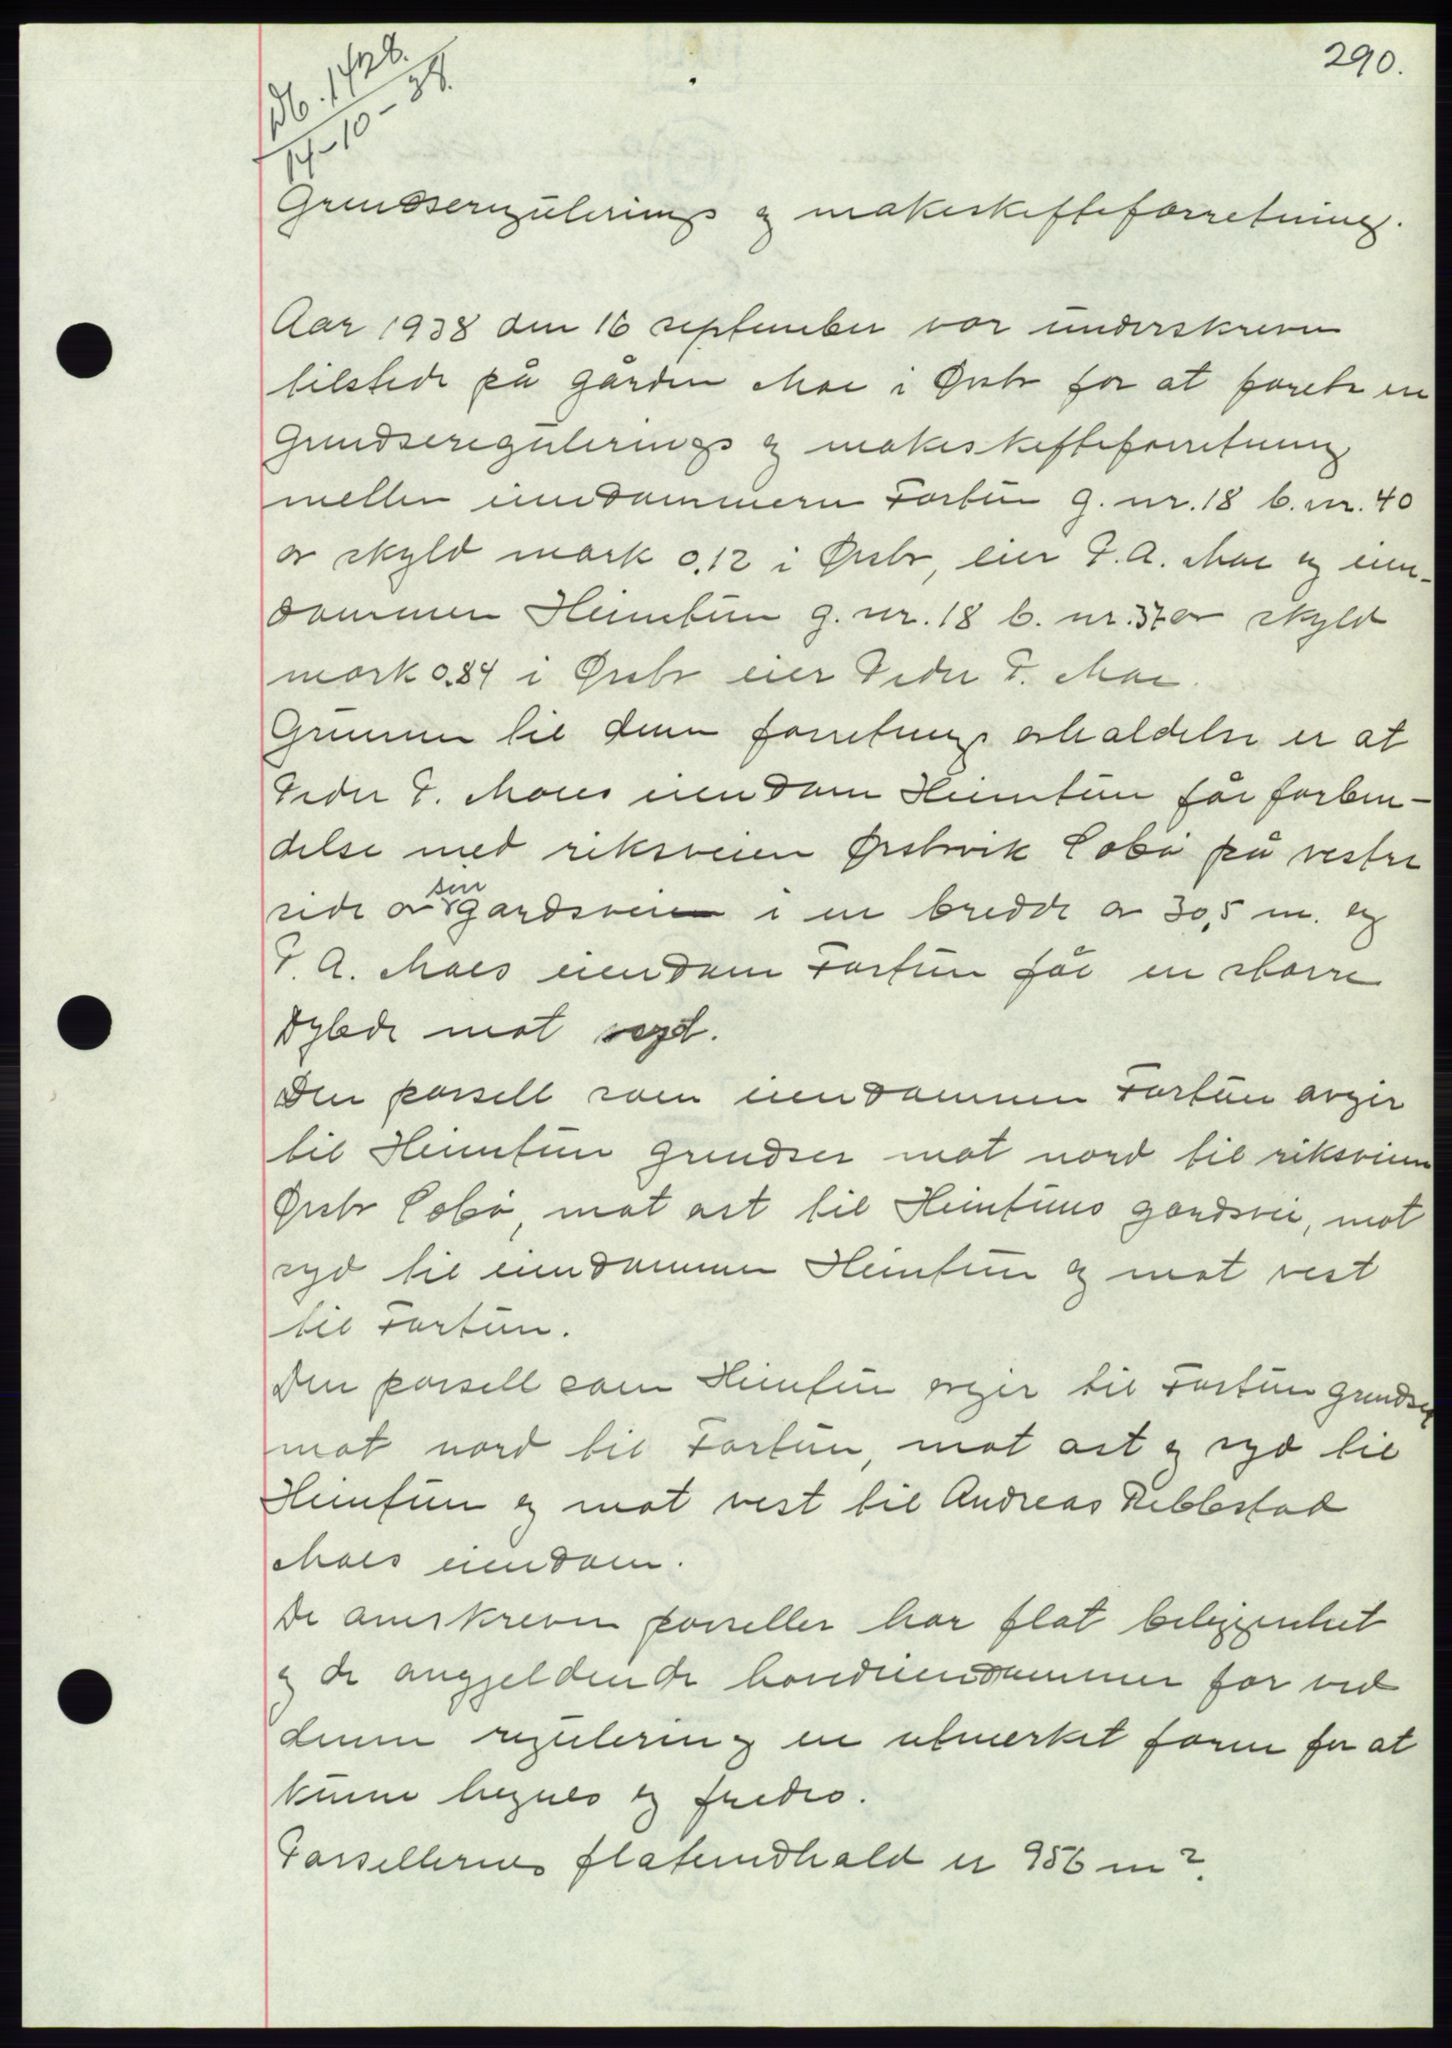 290.
Db. 1428.
14-10-38.
Grendseregulerings og makeskifteforretning.
Aar 1938 den 16 september var underskreven
tilstede på gården Moe i Ørsta for at foreta en
Grendseregulerings og makeskifteforretning
mellem eiendommene Fortun g. nr. 18 b. nr. 40
av skyld mark 0.12 i Ørsta, eier P. A. Moe og eien-
dommen Heimtun g. nr. 18 b. nr. 37 av skyld
mark 0.84 i Ørsta eier Peder P. Moe.
Grunnen til denne forretnings avholdelse er at
Peder P. Moes eiendom Heimtun får forbin-
delse med riksveien Ørstavik Follestad på vestre
side av sin gardsvei i en bredde av 30,5 m. og
P. A. Moes eiendom Fortun får en større
Dybde mot syd.
Den parsell som eiendommen Fortun avgir
til Heimtun grendser mot nord til riksveien
Ørsta, mot øst til Heimtuns gardsvei, mot
syd til eiendommen Heimtun og mot vest
til Fortun.
Den parsell som Heimtun avgir til Fortun grendser
mot nord til Fortun, mot øst og syd til
Heimtun og mot vest til Andreas Ribbestad
Moes eiendom.
De omskrevne parseller har flat beliggenhet
og de angjeldende hovedeiendommer får ved
denne regulering en utmerket form for at
kunne hegnes og fredes.
Parsellernes flateindhold er 956 m².